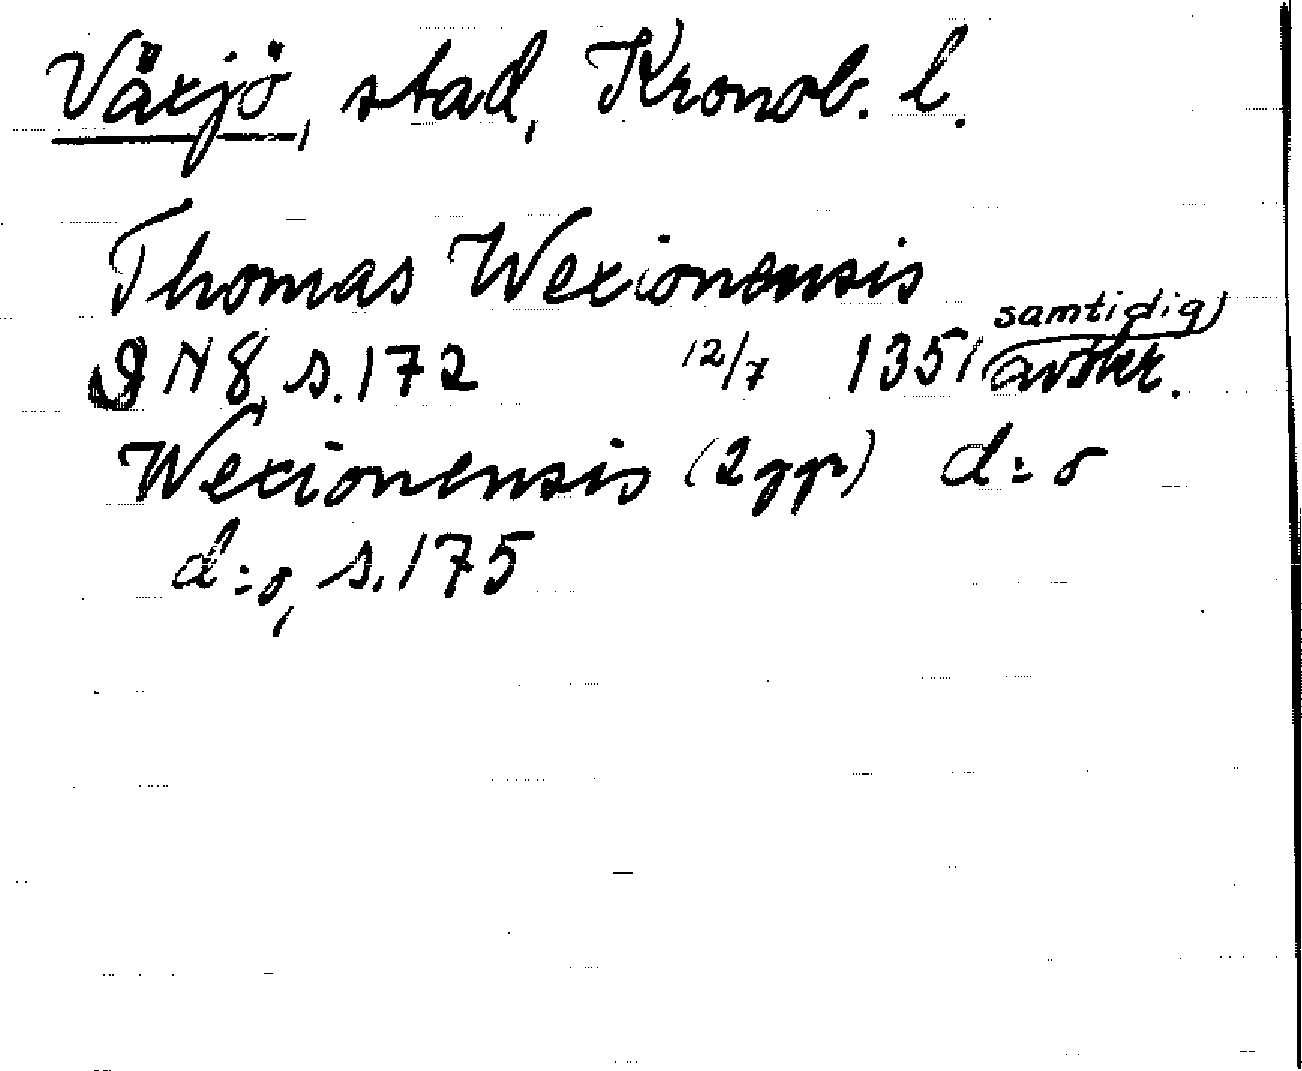 Växjö, stad, Kronob. l.
Thomas Wexionensis
DN 8, s. 172 12/7 1351 (samtidig) avskr.
Wexionensis (2 ggr) d:o
d:o, s. 175